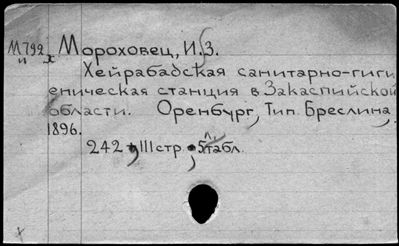 М792 Мороховец, И.З.
и х
Хейрабадская санитарно-гиги
еническая станция в Закаспийской
области. Оренбург, Тип. Бреслина,
1896.
242 + III стр., 5 л. табл.
х